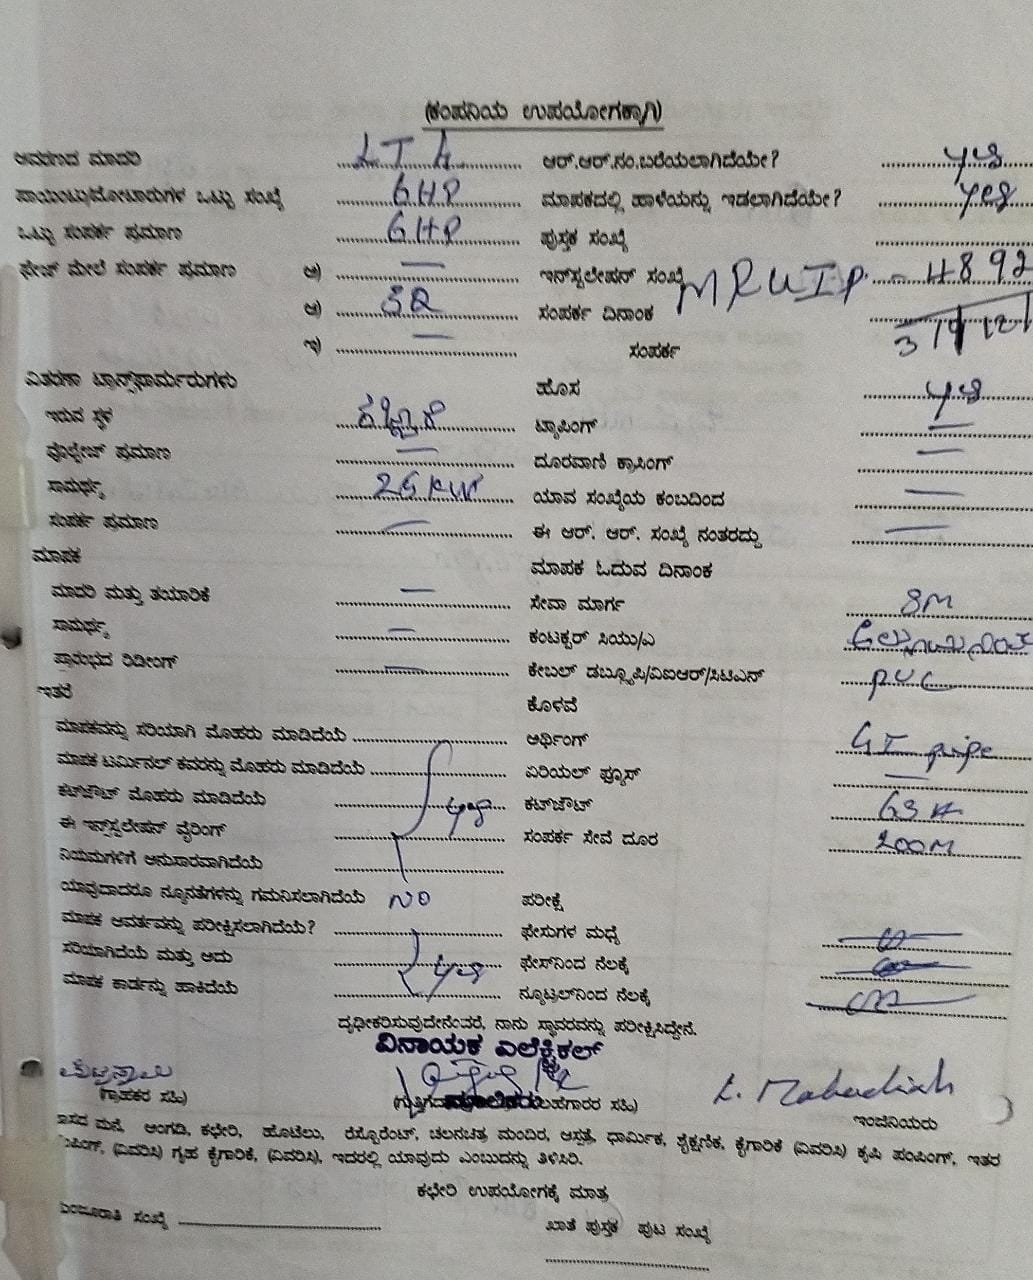 (ಕಂಪನಿಯ ಉಪಯೋಗಕ್ಕಾಗಿ)
ಆವರಣದ ಮಾದರಿ LT 4 ಆರ್.ಆರ್.ನಂ.ಬರೆಯಲಾಗಿದೆಯೇ? yes
ಪಾಯಿಂಟು/ಮೋಟಾರುಗಳ ಒಟ್ಟು ಸಂಖ್ಯೆ 6HP ಮಾಪಕದಲ್ಲಿ ಹಾಳೆಯನ್ನು ಇಡಲಾಗಿದೆಯೇ? yes
ಒಟ್ಟು ಸಂಪರ್ಕ ಪ್ರಮಾಣ 6HP ಪುಸ್ತಕ ಸಂಖ್ಯೆ
ಫೇಜ್ ಮೇಲೆ ಸಂಪರ್ಕ ಪ್ರಮಾಣ ಅ) — ಇನ್‌ಸ್ಟಲೇಷನ್ ಸಂಖ್ಯೆ MRUIP - 4892
ಆ) ಸಂಪರ್ಕ ದಿನಾಂಕ
ಇ) — ಸಂಪರ್ಕ
ವಿತರಣಾ ಟ್ರಾನ್ಸ್‌ಫಾರ್ಮರುಗಳು ಹೊಸ yes
ಇರುವ ಸ್ಥಳ ಟ್ಯಾಪಿಂಗ್ —
ವೋಲ್ಟೇಜ್ ಪ್ರಮಾಣ — ದೂರವಾಣಿ ಕ್ರಾಸಿಂಗ್ —
ಸಾಮರ್ಥ್ಯ 25 KW ಯಾವ ಸಂಖ್ಯೆಯ ಕಂಬದಿಂದ —
ಸಂಪರ್ಕ ಪ್ರಮಾಣ — ಈ ಆರ್. ಆರ್. ಸಂಖ್ಯೆ ನಂತರದ್ದು —
ಮಾಪಕ ಮಾಪಕ ಓದುವ ದಿನಾಂಕ
ಮಾದರಿ ಮತ್ತು ತಯಾರಿಕೆ — ಸೇವಾ ಮಾರ್ಗ 8M
ಸಾಮರ್ಥ್ಯ — ಕಂಟಕ್ಟರ್ ಸಿಯು/ಎ
ಪ್ರಾರಂಭದ ರಿಡೀಂಗ್ — ಕೇಬಲ್ ಡಬ್ಲ್ಯೂಪಿ/ವಿಐಆರ್/ಸಿಟಿಎನ್ PVC
ಇತರೆ ಕೊಳವೆ
ಮಾಪಕವನ್ನು ಸರಿಯಾಗಿ ಮೊಹರು ಮಾಡಿದೆಯೆ ಆರ್ಥಿಂಗ್ GI pipe
ಮಾಪಕ ಟರ್ಮಿನಲ್ ಕವರನ್ನು ಮೊಹರು ಮಾಡಿದೆಯೆ ಏರಿಯಲ್ ಫ್ಯೂಸ್ —
ಕಟ್‌ಔಟ್ ಮೊಹರು ಮಾಡಿದೆಯೆ yes ಕಟ್‌ಔಟ್ 63 A
ಈ ಇನ್‌ಸ್ಟಲೇಷನ್ ವೈರಿಂಗ್ ಸಂಪರ್ಕ ಸೇವೆ ದೂರ 200M
ನಿಯಮಗಳಿಗೆ ಅನುಸಾರವಾಗಿದೆಯೆ
ಯಾವುದಾದರೂ ನ್ಯೂನತೆಗಳನ್ನು ಗಮನಿಸಲಾಗಿದೆಯೆ NO ಪರೀಕ್ಷೆ
ಮಾಪಕ ಆವರ್ತವನ್ನು ಪರೀಕ್ಷಿಸಲಾಗಿದೆಯೆ? ಫೇಸುಗಳ ಮಧ್ಯೆ
ಸರಿಯಾಗಿದೆಯೆ ಮತ್ತು ಅದು yes ಫೇಸ್‌ನಿಂದ ನೆಲಕ್ಕೆ
ಮಾಪಕ ಕಾರ್ಡನ್ನು ಹಾಕಿದೆಯೆ ನ್ಯೂಟ್ರಲ್‌ನಿಂದ ನೆಲಕ್ಕೆ
ದೃಢೀಕರಿಸುವುದೇನೆಂದರೆ, ನಾನು ಸ್ಥಾವರವನ್ನು ಪರೀಕ್ಷಿಸಿದ್ದೇನೆ.
ವಿನಾಯಕ ಎಲೆಕ್ಟ್ರಿಕಲ್
(ಗ್ರಾಹಕರ ಸಹಿ) ಸಹಿ)
ಇಂಜಿನಿಯರು
ವಾಸದ ಮನೆ, ಅಂಗಡಿ, ಕಛೇರಿ, ಹೊಟೆಲು, ರೆಸ್ಟೊರೆಂಟ್, ಚಲನಚಿತ್ರ ಮಂದಿರ, ಆಸ್ಪತ್ರೆ, ಧಾರ್ಮಿಕ, ಶೈಕ್ಷಣಿಕ, ಕೈಗಾರಿಕೆ (ವಿವರಿಸಿ) ಕೃಷಿ ಪಂಪಿಂಗ್, ಇತರ
ಪಂಪಿಂಗ್, (ವಿವರಿಸಿ) ಗೃಹ ಕೈಗಾರಿಕೆ, (ವಿವರಿಸಿ), ಇದರಲ್ಲಿ ಯಾವುದು ಎಂಬುದನ್ನು ತಿಳಿಸಿರಿ.
ಕಛೇರಿ ಉಪಯೋಗಕ್ಕೆ ಮಾತ್ರ
ಮಂಜೂರಾತಿ ಸಂಖ್ಯೆ ಖಾತೆ ಪುಸ್ತಕ ಪುಟ ಸಂಖ್ಯೆ